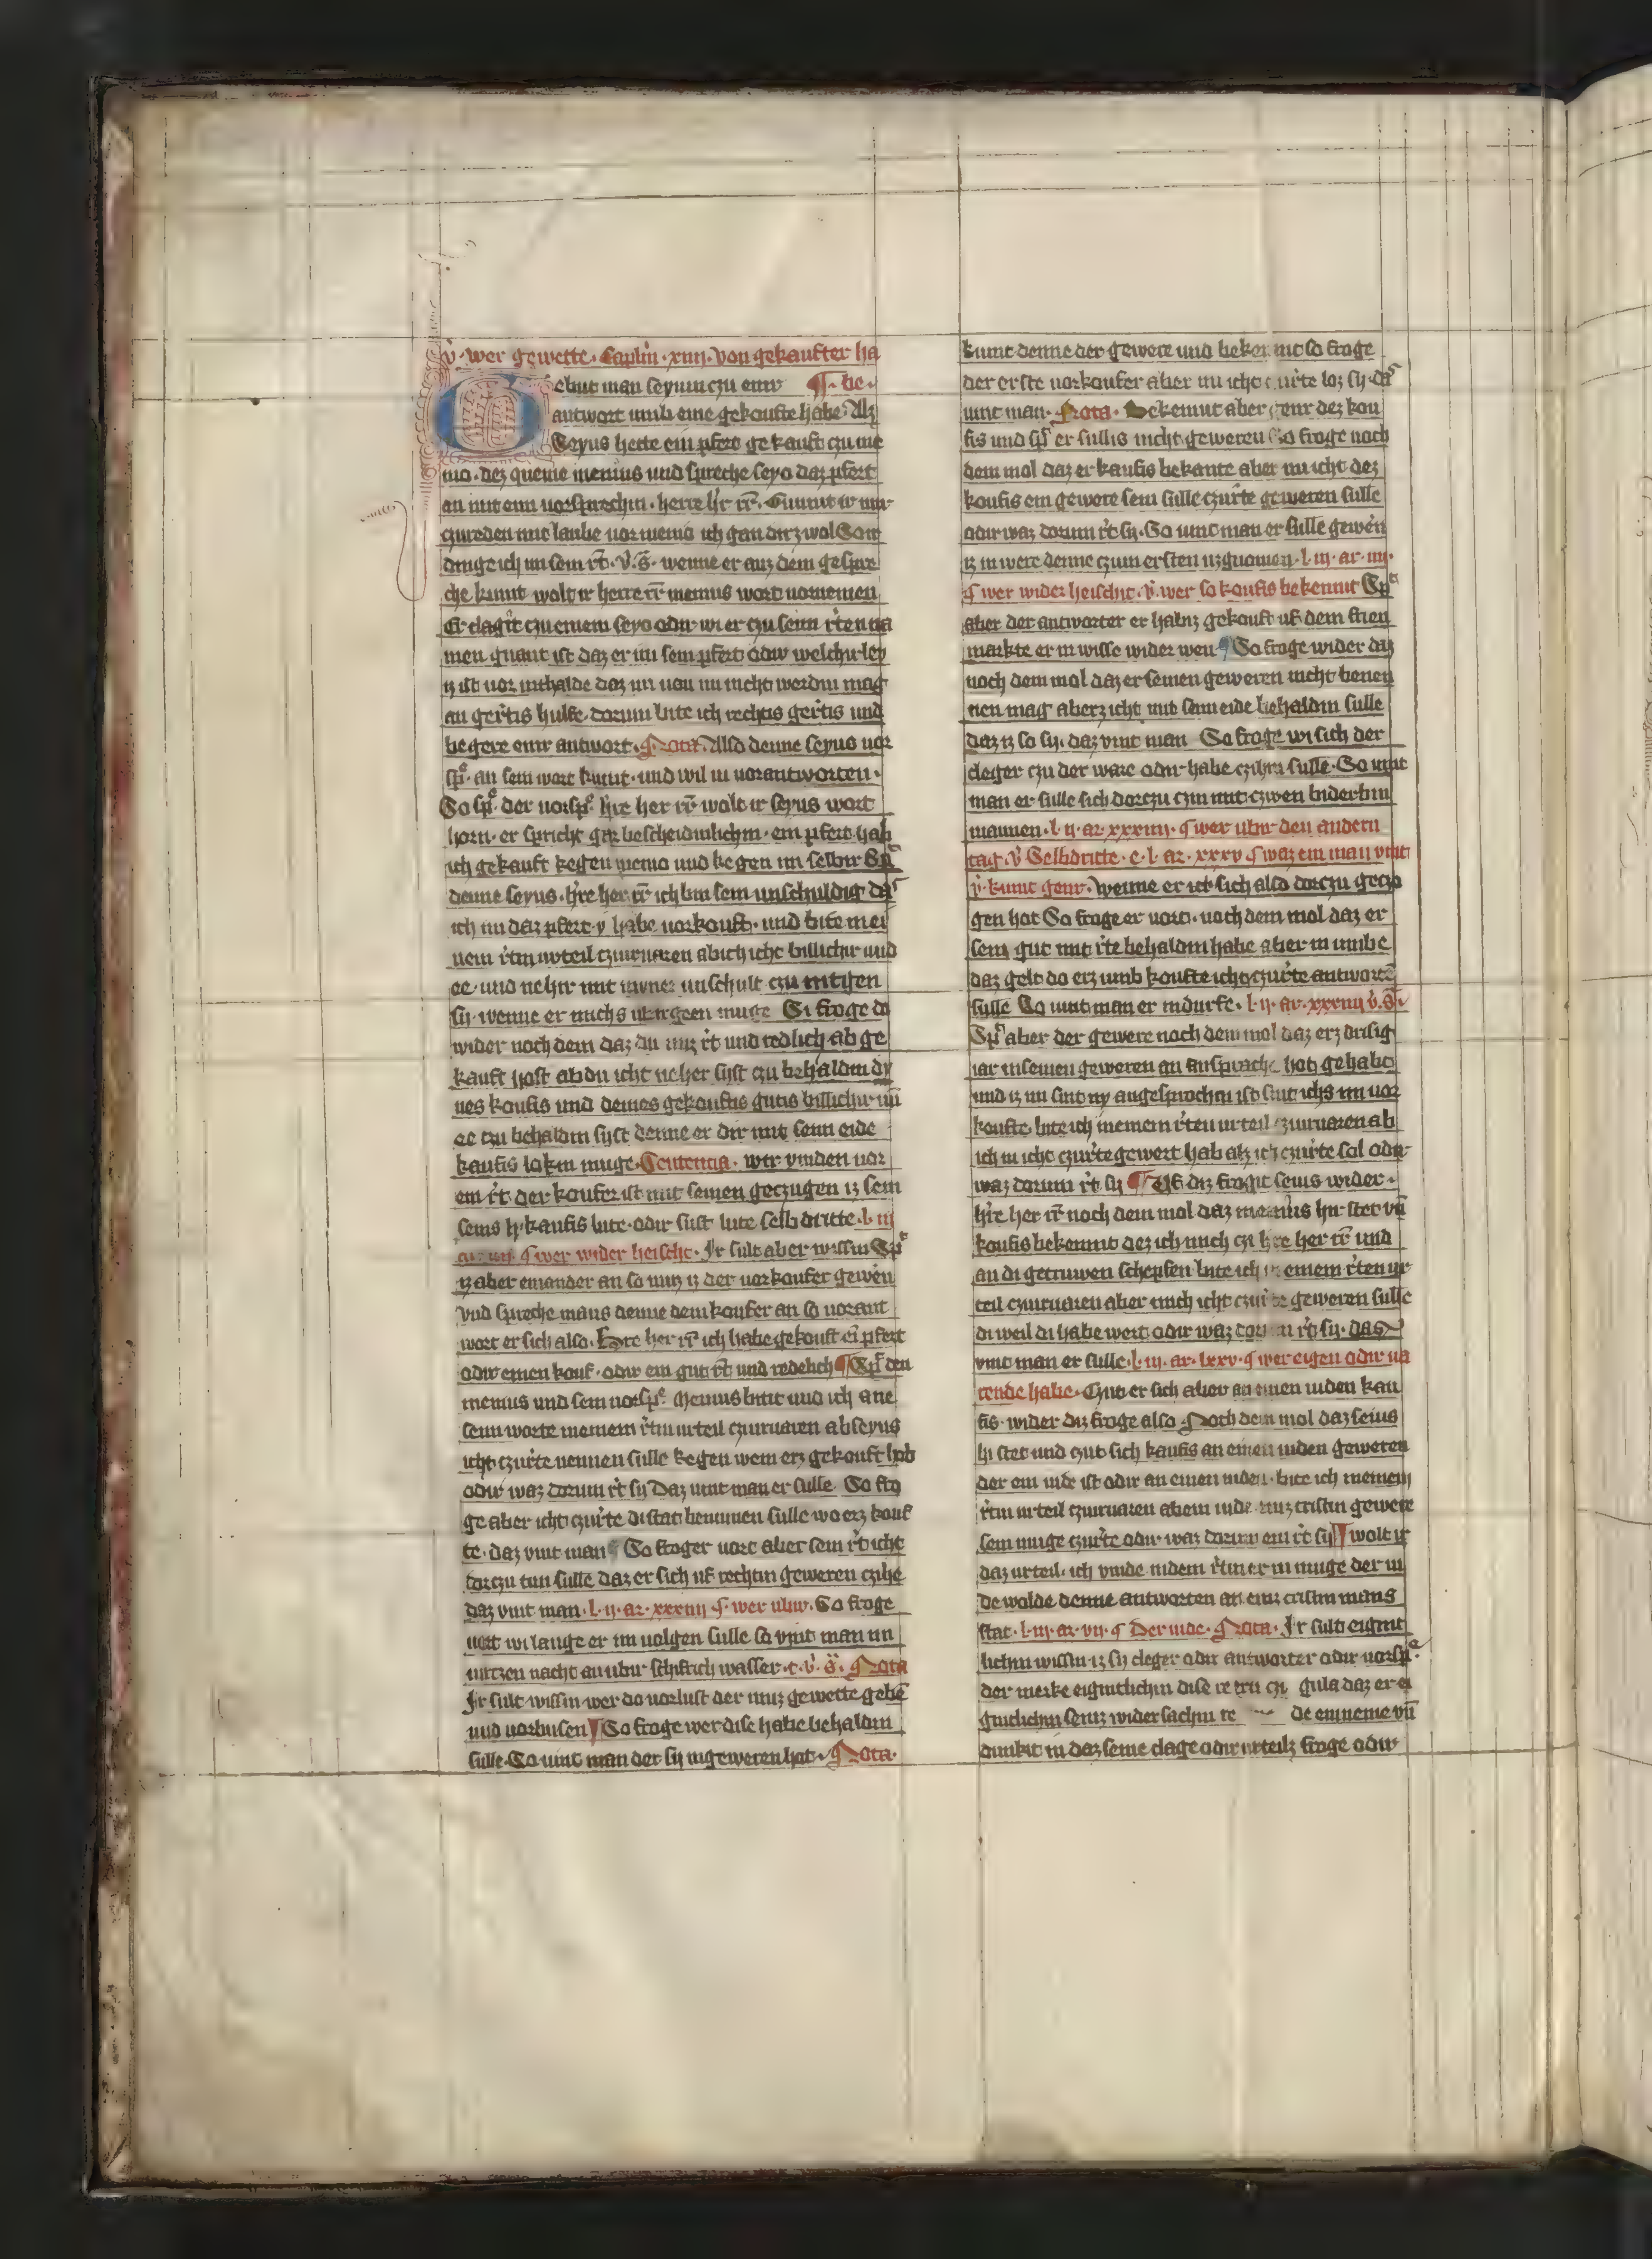 v̉. wer gewette. Caplm̄. xiiij. von gekaufter ha
Ebut man seyum czu eynr ¶. be.
antwort umb eine gekoufte habe. Alz
Seyus hette ein pfert gekauft czu me
mo. dez queme menius und spreche seyo daz pfert
an mit eim vorsprechin. herre h'r rr̄. Gunnit ir mir
czureden mit laube vor menio ich gan dirz wol So
dinge ich im sein rt̄. v̉. s̄. wenne er auz dem gespre
che kumt. wolt ir herre rr̄ menius wort vornemen
Er clagit czu eniem seyo odir wi er czu seim r̄ten na
men gnant ist daz er im sein pfert odir welchirley
iz ist vor inthalde daz im von im nicht werdin mag
an ger̄tis hulfe. dorum bite ich rechtis ger̄tis und
begere einr antwort. Nota. Also denne seyus vor
sp̄. an sein wort kumt. und wil in vorantworten.
So sp̄. der vorsp̄. h're her rr̄ wolt ir seyus wort
horn. er spricht gar bescheidinlichin. ein pfert hab
ich gekauft kegen menio und kegen im selbir Sp̄
denne seyus. h're her rr̄ ich bin sein unschuldig daz
ich im daz pfert y habe vorkouft. und bite mei
nem r̄tin urteil czuirvaren ab ich icht billichir und
ee. und nehir mit myner unschult czu intgen
sy. wenne er michs ubirgeen muge Si froge do
wider noch dem daz du imz rt̄ und redlich ab ge
kauft host ab du icht neher syst czu behaldin dy
nes koufis und deines gekouftis gutis billichir un̄
ee czu behaldin syst denne er dir mit seim eide
kaufis lokin muge. Sentencia. wir vinden vor
ein rt̄. der koufer ist mit seinen geczugen iz sein
seins h'. kaufis lute. odir sust lute selb dritte. l. iij
ar. iiij. ¶ wer wider heischt. Ir sult aber wissin Sp̄
iz aber einander an so muz iz der vorkoufer gewern
Vnd spreche mans denne dem koufer an so vorant
wort er sich also. Hore her rr̄ ich habe gekouft ein pfert
odir einen kouf. odir ein gut rt̄ und redelich ¶ Sp̄ den
menius und sein vorsp̄. Menius bitit und ich ane
seim worte meinem r̄tin urteil czuirvaren ab seyus
icht czur̄te nennen sulle kegen wem erz gekouft hob
odir waz dorum rt̄ sy Daz vint man er sulle. So fro
ge aber icht czur̄te di stat benumen sulle wo erz kouf
te. daz vint man ¶ So froger vort aber sein rt̄ icht
dorczu tun sulle daz er sich uf rechtin geweren czihe
daz vint man. l. ij. ar. xxxiiij ¶ wer ubir. So froge
vort wi lange er im volgen sulle so vint man im
virtzen nacht an ubir schifrich wasser. c. v̉. s̄. Nota
Ir sult wissin wer do vorlust der muz gewette geben
und vorbusen ¶ So froge wer dise habe behaldin
sulle. So vint man der sy ingeweren hat. Nota.
kumt denne der gewere und beken nit so froge
der erste vorkoufer aber nu icht czur̄te loz sy. daz
vint man. Nota. Bekennit aber genr dez kou
fis und sp̄ er sullis nicht geweren So froge noch
dem mol daz er kaufis bekante aber nu icht dez
koufis ein gewere sein sulle czur̄te geweren sulle
odir waz dorum rt̄ sy. So vint man er sulle gewern
iz in were denne czum ersten uzgnomen. l. iij. ar. iiij.
¶ wer wider heischit. v̉. wer so koufis bekennit Sp̄
aber der antworter er habiz gekouft uf dem frien
markte er in wisse wider wen ¶ So froge wider diz
noch dem mol daz er seinen geweren nicht benen
nen mag aberz icht mit seim eide behaldin sulle
daz iz so sy. daz vint man So froge wi sich der
cleger czu der ware odir habe czihen sulle. So vint
man er sulle sich dorczu czin mit czwen biderbin
mannen. l. ij. ar. xxxiiij. ¶ wer ubir den andern
tag. v̉ Selbdritte. e. l. ar. xxxv ¶ waz ein man vint
v̉. kumt genr. Wenne er icht sich also dorczu geczo
gen hot So froge er vort. noch dem mol daz er
sein gut mit r̄te behaldin habe aber in umbe
daz gelt do erz umb koufte icht czur̄te antworten
sulle So vint man er indurfe. l. ij. ar. xxxiiij v̉. s̄.
Sp̄ aber der gewere noch dem mol daz erz drisig
iar in seinen geweren an ansprache hot gehabt
und iz im sint ny angesprochen ist sint ichs im vor
koufte. bite ich meinem r̄ten urteil czuirvaren ab
ich in icht czur̄te gewert hab alz ich czur̄te sol odir
waz dorum rt̄ sy ¶ Uf diz frogit seius wider.
h're her rr̄ noch dem mol daz menius hir stet un̄
koufis bekennit dez ich mich czi h're her rr̄ und
an di getruwen schepfen bite ich meinem r̄ten ur
teil czuirvaren aber mich icht czur̄te geweren sulle
di weil di habe wert odir waz dorum rt̄ sy. das
vint man er sulle. l. iij. ar. lxxv. ¶ wer eigen odir va
rende habe. Czut er sich aber an einen iuden kau
fis. wider diz froge also Noch dem mol daz seius
hi stet und czut sich kaufis an einen iuden geweren
der ein iude ist odir an einen iuden. bite ich meinem
r̄tin urteil czuirvaren ab ein iude einz cristin gewere
sein muge czur̄te odir waz dorum ein rt̄ sy ¶ wolt ir
daz urteil. ich vinde indem r̄tin er in muge der iu
de wolde denne antworten an einz cristin mans
stat. l. iij. ar. vij. ¶ Der iude. Nota. Ir sult eigint
lichin wissin iz sy cleger odir antworter odir vorsp̄.
der merke eigintlichin dise re gula daz er ei
gintlichin seinz wider sachin re de einneme un̄
dunkit in daz seine clage odir urteilz froge odir